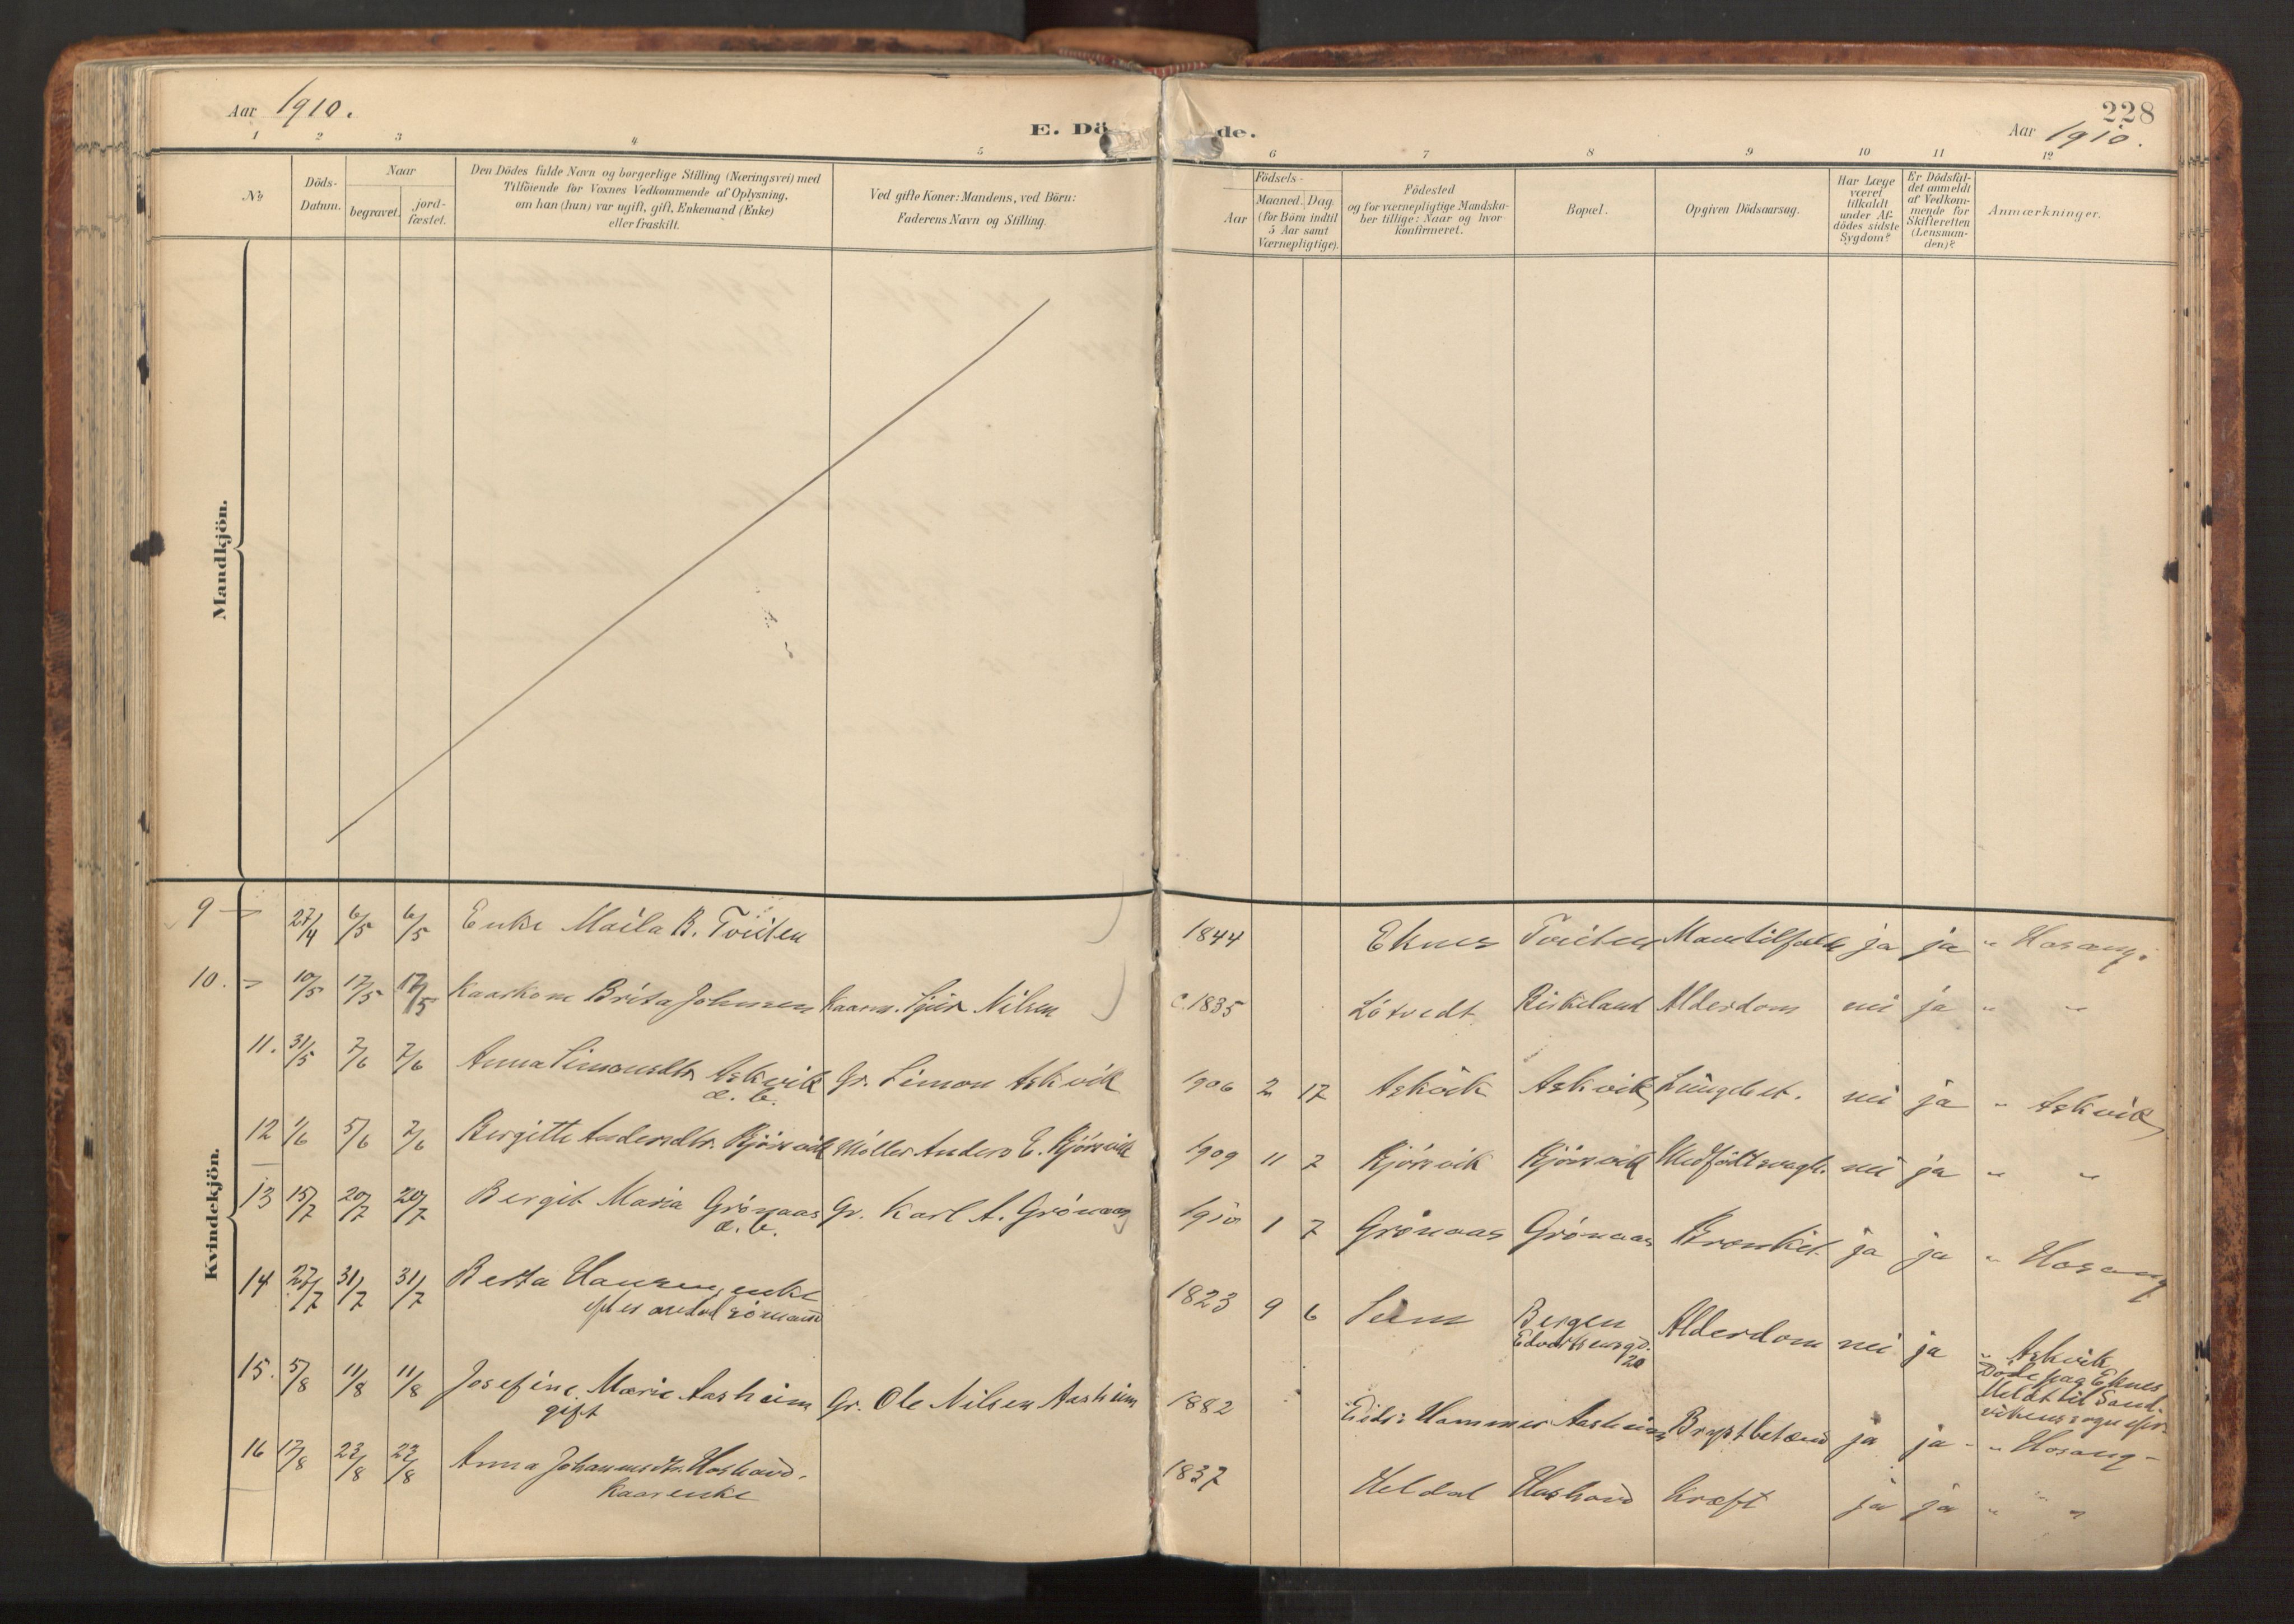 Aar 1910.
E. Dö de.
228
Aar 1910.
1 2 3 4 5 6 7 8 9 10 11 12
No
Döds-
Datum.
Naar
begravet.
jord-
fæstet.
Den Dödes fulde Navn og borgerlige Stilling (Næringsvei) med
Tilföiende for Voxnes Vedkommende af Oplysning,
om han (hun) var ugift, gift, Enkemand (Enke)
eller fraskilt.
Ved gifte Koner: Mandens, ved Börn:
Faderens Navn og Stilling.
Födsels-
Aar
Maaned. Dag.
(for Börn indtil
5 Aar samt
Værnepligtige).
Födested
og for værnepligtige Mandska-
ber tillige: Naar og hvor
konfirmeret.
Bopæl.
Opgiven Dödsaarsag.
Har Læge
været
tilkaldt
under Af-
dödes sidste
Sygdom?
Er Dödsfal-
det anmeldt
af Vedkom-
mende for
Skifteretten
(Lensman-
den)?
Anmærkninger.
Mandkjön.
Kvindekjön.
9 27/4 6/5 6/5 Enke Maila B. Tveiten 1844 Eknes Tveiten ja ja " Hosang.
10. 10/5 17/5 17/5 Kaarkone Brita Johnsen Kaarm. Nilsen c. 1835 Lötvedt Riskeland Alderdom nei ja " "
11. 31/5 7/6 7/6 Anna Simonsdtr. Askvik Gr. Simon Askvik 1906 2 17 Askvik Askvik Lungebet. nei ja " Askvik
æ. b.
12 1/6 5/6 7/6 Bergitte Andersdtr. Kjörvik Möller Anders E. Kjörvik 1909 11 7 Kjörvik Kjörvik Medfödt svagh. nei ja " "
13 15/7 20/7 20/7 Bergit Maria Grönaas Gr. Karl A. Grönaas 1910 1 7 Grönaas Grönaas Bronkit. ja ja " Hosang
æ. b.
14 27/7 31/7 31/7 Berta Hansen, enke 1823 9 6 Seim Bergen Alderdom nei ja " Askvik
efter arbeidsmand
20
Döde paa Eknes
Meldt til Sand-
vikens sognepr.
15. 5/8 11/8 11/8 Josefine Marie Aasheim Gr. Ole Nilsen Aasheim 1882 Eids: Hammer Aasheim Brystbetænd ja ja - " Hosang-
gift
16 17/8 23/8 23/8 Anna Johannesdtr. Hoshovd. 1837 Heldal Hoshovd Kræft ja ja " "
Kaarenke